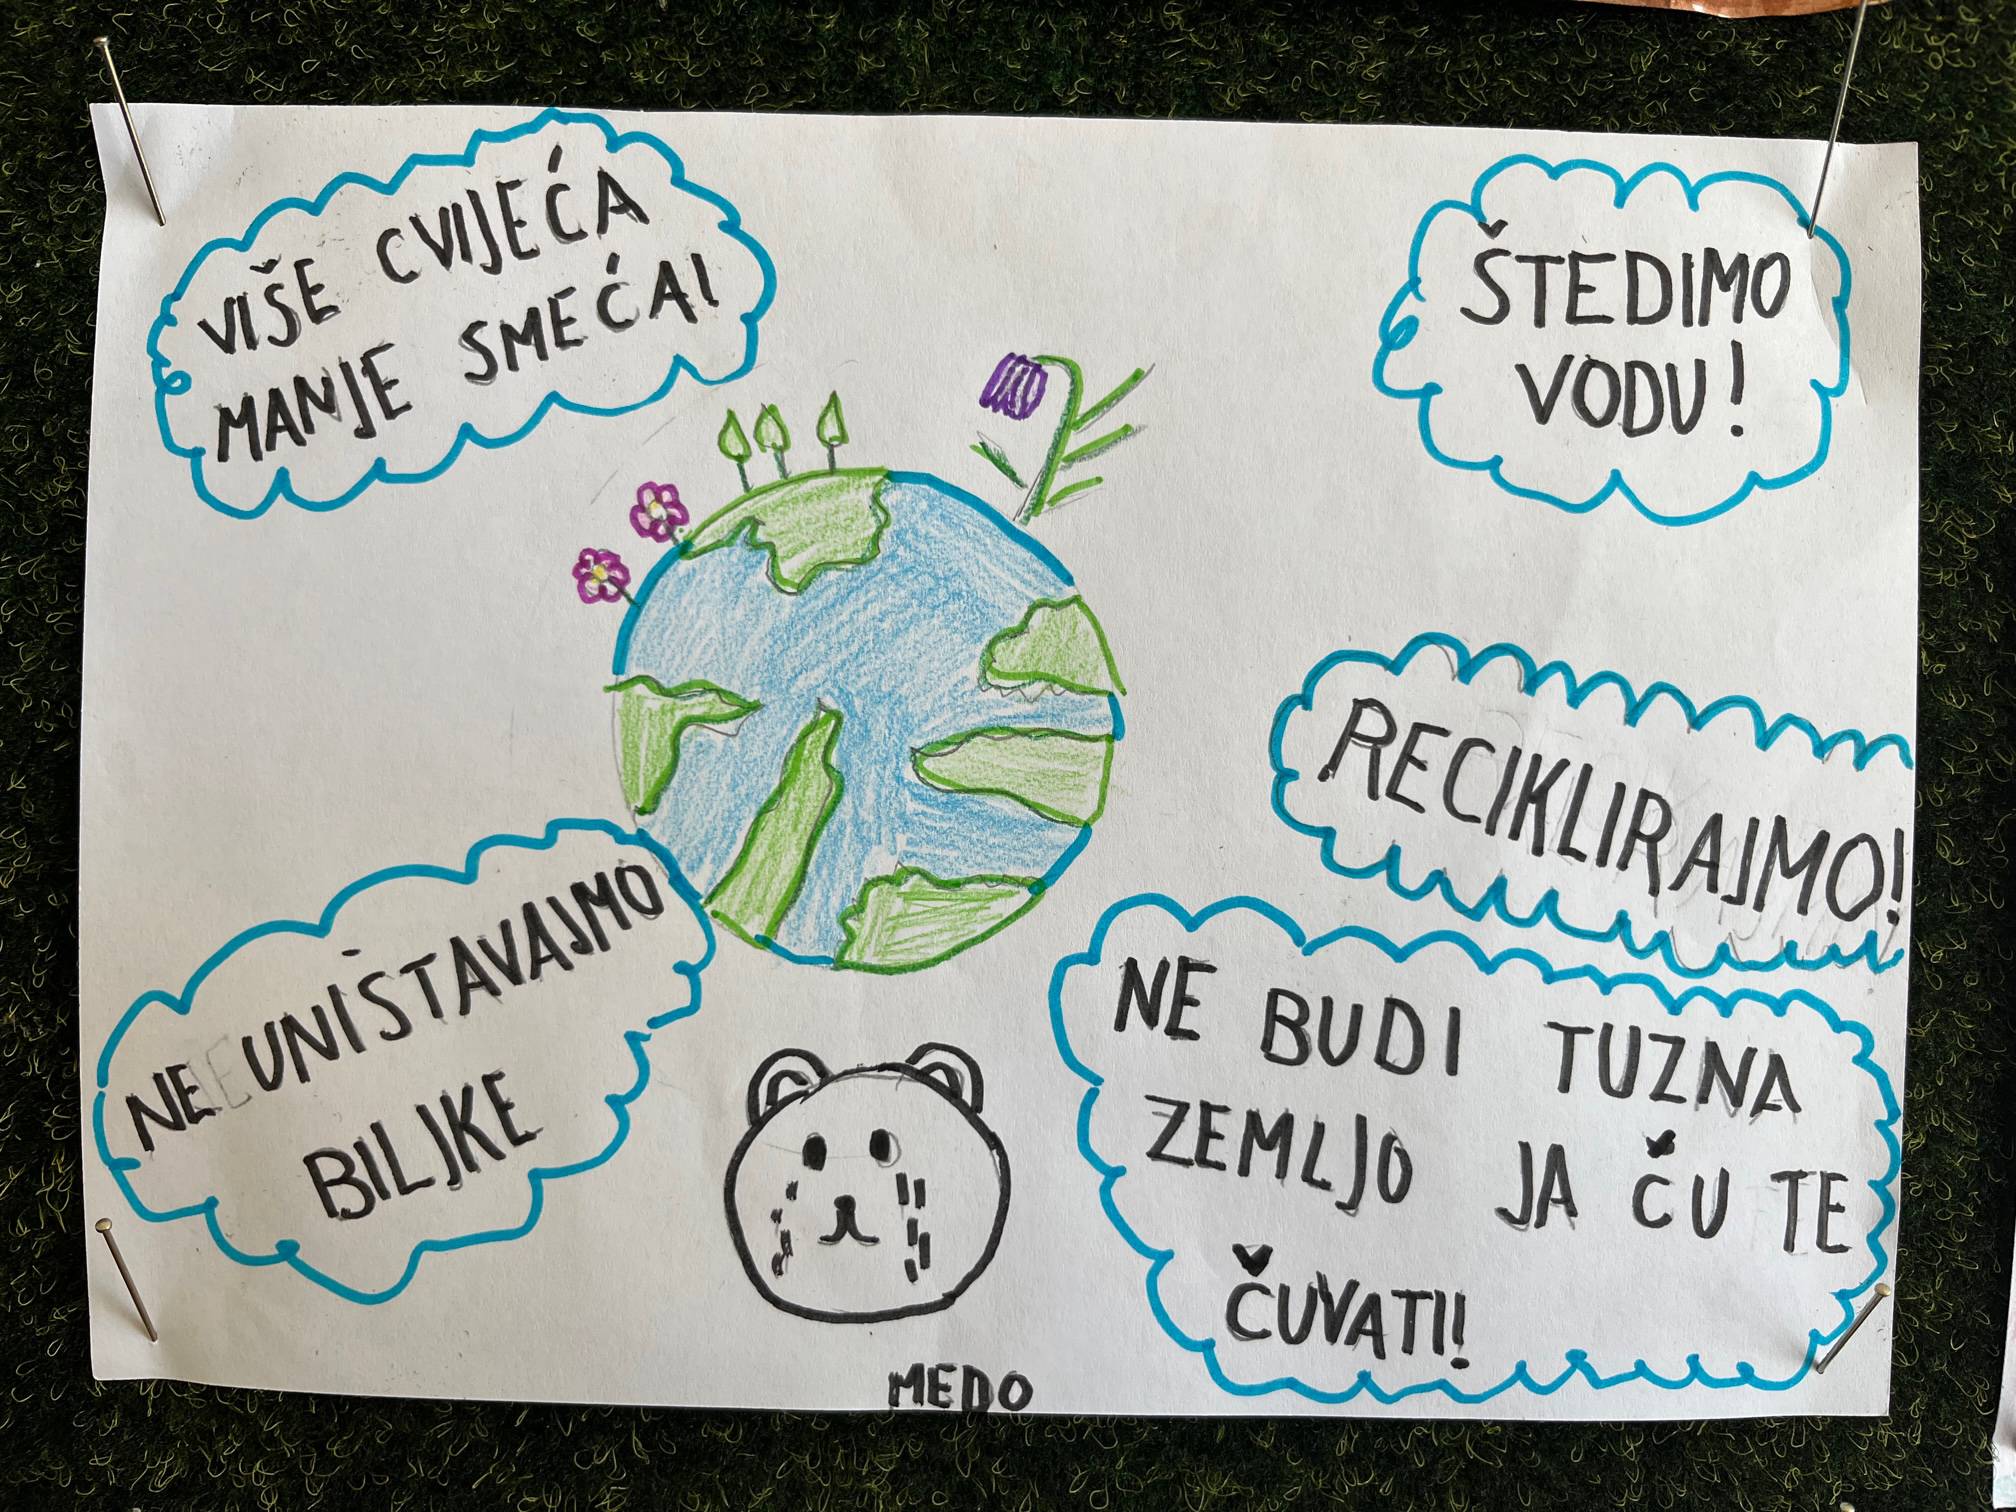 VIŠE CVIJEĆA
MANJE SMEĆA!
ŠTEDIMO
VODU!
RECIKLIRAJMO!
NE UNIŠTAVAJMO
BILJKE
NE BUDI TUZNA
ZEMLJO JA ČU TE
ČUVATI!
MEDO